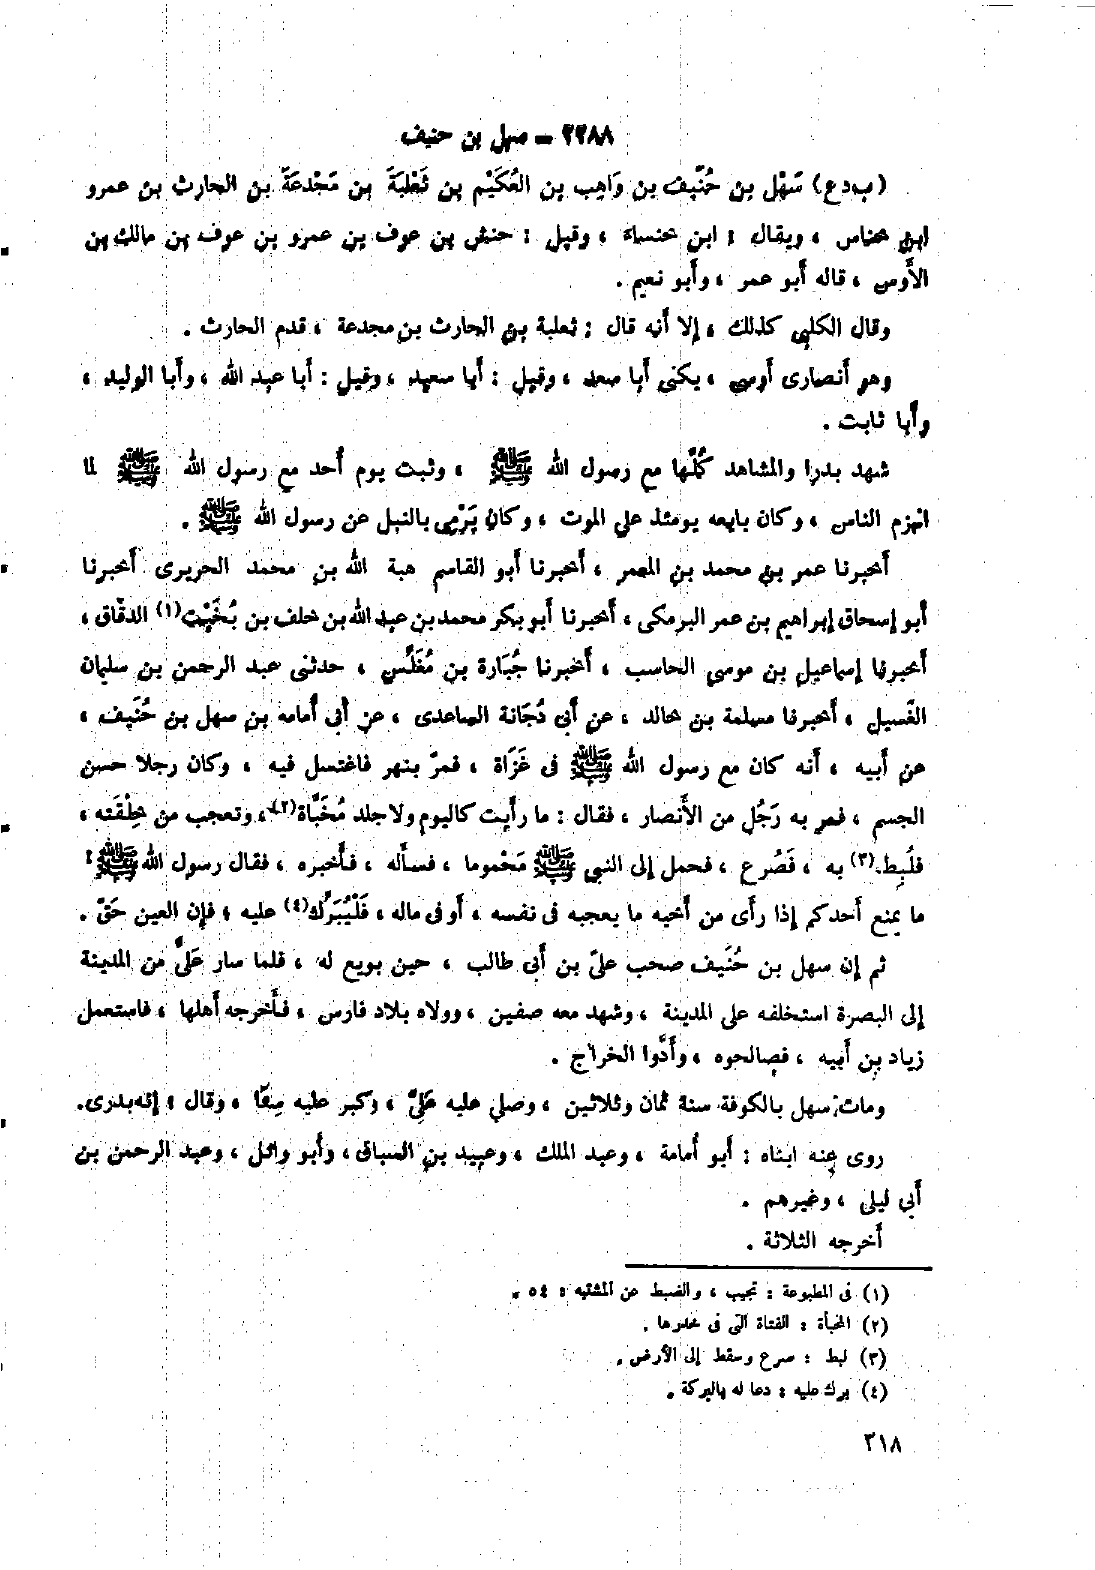 ٢٢٨٨ – سهل بن حنيف
(ب د ع) سَهْل بن حُنَيف بن وَاهِب بن العُكَيْم بن ثَعْلبَةَ بن مَجْدعَةَ بن الحارث بن عمرو
ابن خناس ، ويقال : ابن خنساء ، وقيل : حنش بن عوف بن عمرو بن عوف بن مالك بن
الأَوس ، قاله أَبو عمر ، وأَبو نعيم .
وقال الكلبي كذلك ، إلا أَنه قال : ثعلبة بن الحارث بن مجدعة ، قدم الحارث .
وهو أَنصارى أَوسى ، يكنى أَبا سعد ، وقيل : أَبا سعيد ، وقيل : أَبا عبد الله ، وأَبا الوليد ،
وأَبا ثابت .
شهد بدرا والمشاهد كُلَّها مع رسول الله ﷺ ، وثبت يوم أُحد مع رسول الله ﷺ لما
انهزم الناس ، وكان بايعه يومئذ على الموت ، وكان يَرْمِى بالنبل عن رسول الله ﷺ .
أَخبرنا عمر بن محمد بن المعمر ، أَخبرنا أَبو القاسم هبة الله بن محمد الحريرى أَخبرنا
أَبو إسحاق إبراهيم بن عمر البرمكى ، أَخبرنا أَبو بكر محمد بن عبد الله بن خلف بن بُخَيْت(١) الدقّاق ،
أَخبرنا إسماعيل بن موسى الحاسب ، أَخبرنا جُبَارة بن مُغَلِّس ، حدثنى عبد الرحمن بن سليمان
الغَسيل ، أَخبرنا مسلمة بن خالد ، عن أَبى دُجَانة الساعدى ، عن أَبى أُمامه بن سهل بن حُنَيف ،
عن أَبيه ، أَنه كان مع رسول الله ﷺ فى غَزَاة ، فمرّ بنهر فاغتسل فيه ، وكان رجلا حسن
الجسم ، فمر به رَجُل من الأَنصار ، فقال : ما رأَيت كاليوم ولا جلد مُخَبَّأة(٢) ، وتعجب من خِلْقَته ،
فلُبِط(٣) به ، فَصُرع ، فحمل إلى النبي ﷺ مَحْموما ، فسأَله ، فأَخبره ، فقال رسول الله ﷺ :
ما يمنع أَحدكم إذا رأَى من أَخيه ما يعجبه فى نفسه ، أَو فى ماله ، فَلْيُبَرِّك(٤) عليه ، فإن العين حَقّ .
ثم إن سهل بن حُنَيف صحب علىّ بن أَبى طالب ، حين بويع له ، فلما سار عَلىٌّ من المدينة
إلى البصرة استخلفه على المدينة ، وشهد معه صفين ، وولاه بلاد فارس ، فأَخرجه أَهلها ، فاستعمل
زياد بن أَبيه ، فصالحوه ، وأَدَّوا الخراج .
ومات سهل بالكوفة سنة ثمان وثلاثين ، وصلى عليه عَلِىّ ، وكبر عليه سِتًّا ، وقال : إنه بدرى.
روى عنه ابناه : أَبو أُمامة ، وعبد الملك ، وعبيد بن السباق ، وأَبو وائل ، وعبد الرحمن بن
أَبى ليلى ، وغيرهم .
أَخرجه الثلاثة .
(١) فى المطبوعة : نجيب ، والضبط عن المشتبه : ٥٤ .
(٢) المخبأة : الفتاة التى فى خدرها .
(٣) لبط : صرع وسقط إلى الأرض .
(٤) برك عليه : دعا له بالبركة .
٣١٨